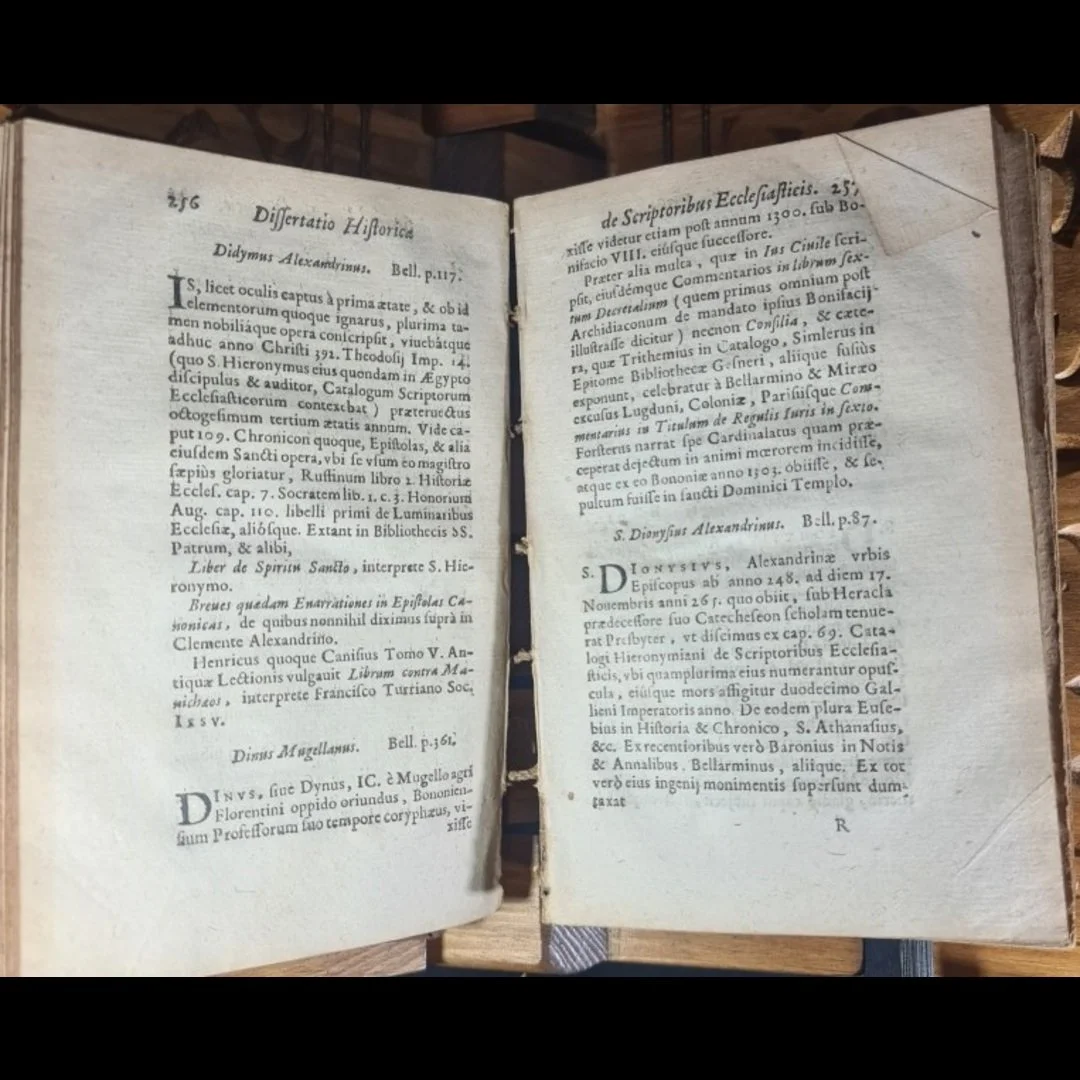 256
Dissertatio Historica
Didymus Alexandrinus. Bell. p.117.
IS, licet oculis captus à prima ætate, & ob id
elementorum quoque ignarus, plurima ta-
men nobiliáque opera conscripsit, viuebátque
adhuc anno Christi 392. Theodosij Imp. 14.
(quo S. Hieronymus eius quondam in Ægypto
discipulus & auditor, Catalogum Scriptorum
Ecclesiasticorum contexebat) præteruectus
octogesimum tertium ætatis annum. Vide ca-
put 109. Chronicon quoque, Epistolas, & alia
eiusdem Sancti opera, vbi se vsum eo magistro
sæpiùs gloriatur, Ruffinum libro 2. Historiæ
Eccles. cap. 7. Socratem lib. 1. c. 3. Honorium
Aug. cap. 110. libelli primi de Luminaribus
Ecclesiæ, aliósque. Extant in Bibliothecis SS.
Patrum, & alibi,
Liber de Spiritu Sancto, interprete S. Hie-
ronymo.
Breues quædam Enarrationes in Epistolas Ca-
nonicas, de quibus nonnihil diximus suprà in
Clemente Alexandrino.
Henricus quoque Canisius Tomo V. An-
tiquæ Lectionis vulgauit Librum contra Ma-
nichæos, interprete Francisco Turriano Soc.
Iesv.
Dinus Mugellanus. Bell. p.361.
DINVS, siue Dynus, IC. è Mugello agri
Florentini oppido oriundus, Bononien-
sium Professorum suo tempore coryphæus, vi-
xisse
de Scriptoribus Ecclesiasticis. 257
xisse videtur etiam post annum 1300. sub Bo-
nifacio VIII. eiúsque successore.
Præter alia multa, quæ in Ius Ciuile scri-
psit, eiusdémque Commentarios in librum sex-
tum Decretalium (quem primus omnium post
Archidiaconum de mandato ipsius Bonifacij
illustrasse dicitur) necnon Consilia, & cæte-
ra, quæ Trithemius in Catalogo, Simlerus in
Epitome Bibliothecæ Gesneri, aliique fusiùs
exponunt, celebratur à Bellarmino & Miræo
excusus Lugduni, Coloniæ, Parisiísque Com-
mentarius in Titulum de Regulis Iuris in sexto.
Forsterus narrat spe Cardinalatus quam præ-
ceperat dejectum in animi mœrorem incidisse,
atque ex eo Bononiæ anno 1303. obiisse, & se-
pultum fuisse in sancti Dominici Templo.
S. Dionysius Alexandrinus. Bell. p.87.
S. DIONYSIVS, Alexandrinæ vrbis
Episcopus ab anno 248. ad diem 17.
Nouembris anni 265. quo obiit, sub Heracla
prædecessore suo Catecheseon scholam tenue-
rat Presbyter, vt discimus ex cap. 69. Cata-
logi Hieronymiani de Scriptoribus Ecclesia-
sticis, vbi quamplurima eius numerantur opus-
cula, eiúsque mors affigitur duodecimo Gal-
lieni Imperatoris anno. De eodem plura Euse-
bius in Historia & Chronico, S. Athanasius,
&c. Ex recentioribus verò Baronius in Notis
& Annalibus, Bellarminus, aliique. Ex tot
verò eius ingenij monimentis supersunt dum-
taxat
R